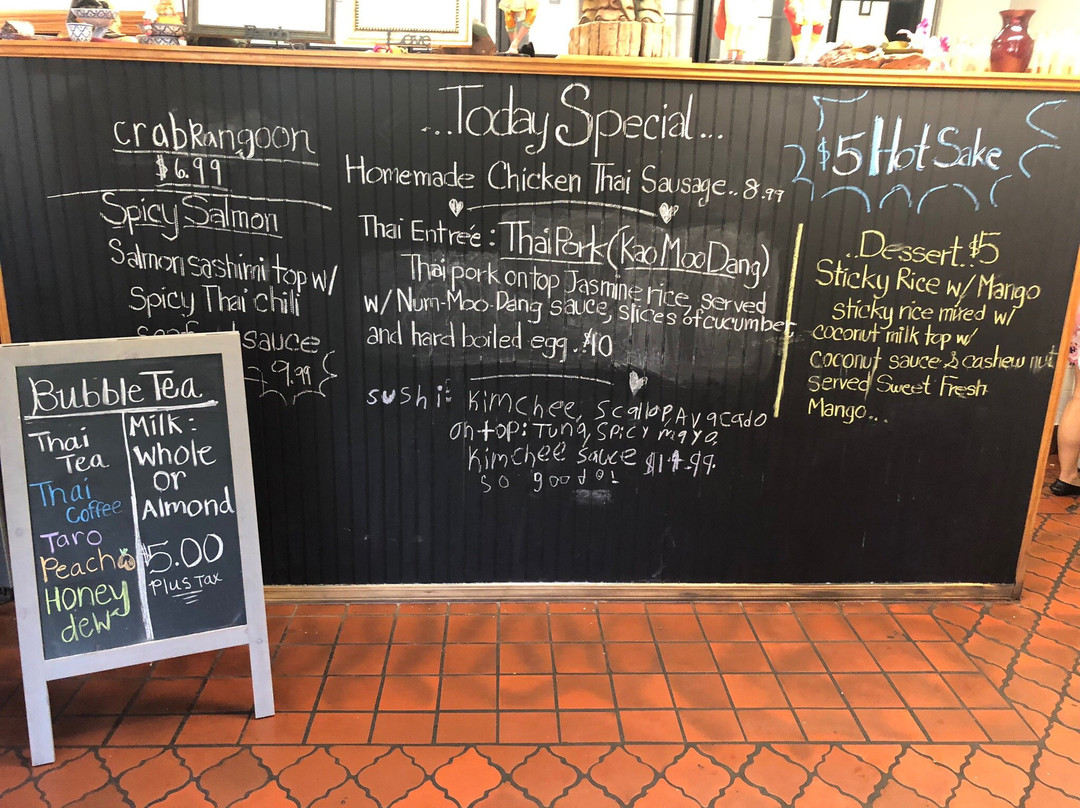 crab Rangoon
$6.99
Spicy Salmon
Salmon sashimi top w/
Spicy Thai chili
seafood sauce
9.99
...Today Special...
Homemade Chicken Thai Sausage..8.99
Thai Entrée: Thai Pork (Kao Moo Dang)
Thai pork on top Jasmine rice, served
w/ Num-Moo-Dang sauce, slices of cucumber
and hard boiled egg..$10
sushi: Kimchee, Scallop, Avacado
on top: Tuna, spicy mayo,
Kimchee sauce
so good!
$5 Hot Sake
..Dessert..$5
Sticky Rice w/ Mango
sticky rice mixed w/
coconut milk top w/
coconut sauce & cashew nut
served Sweet Fresh
Mango...
Bubble Tea
Thai
Tea
Thai
Coffee
Taro
Peach
Honey
dew
Milk:
whole
or
Almond
5.00
Plus Tax